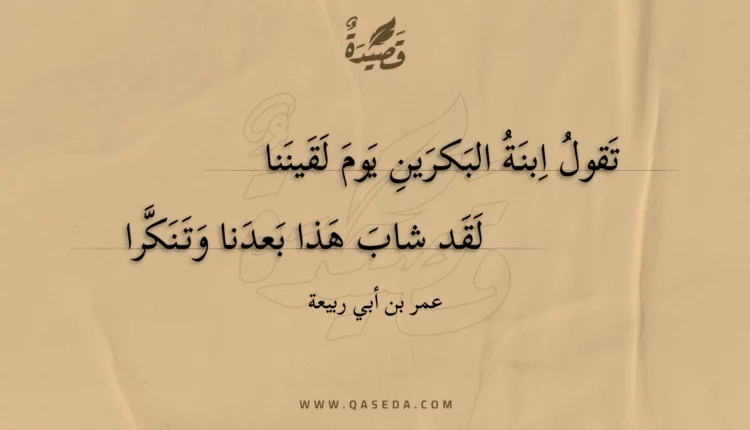 قَصِيْدَةٌ
تَقولُ اِبنَةُ البَكرَينِ يَومَ لَقَينَنا
لَقَد شابَ هَذا بَعدَنا وَتَنَكَّرا
عمر بن أبي ربيعة
WWW.QASEDA.COM